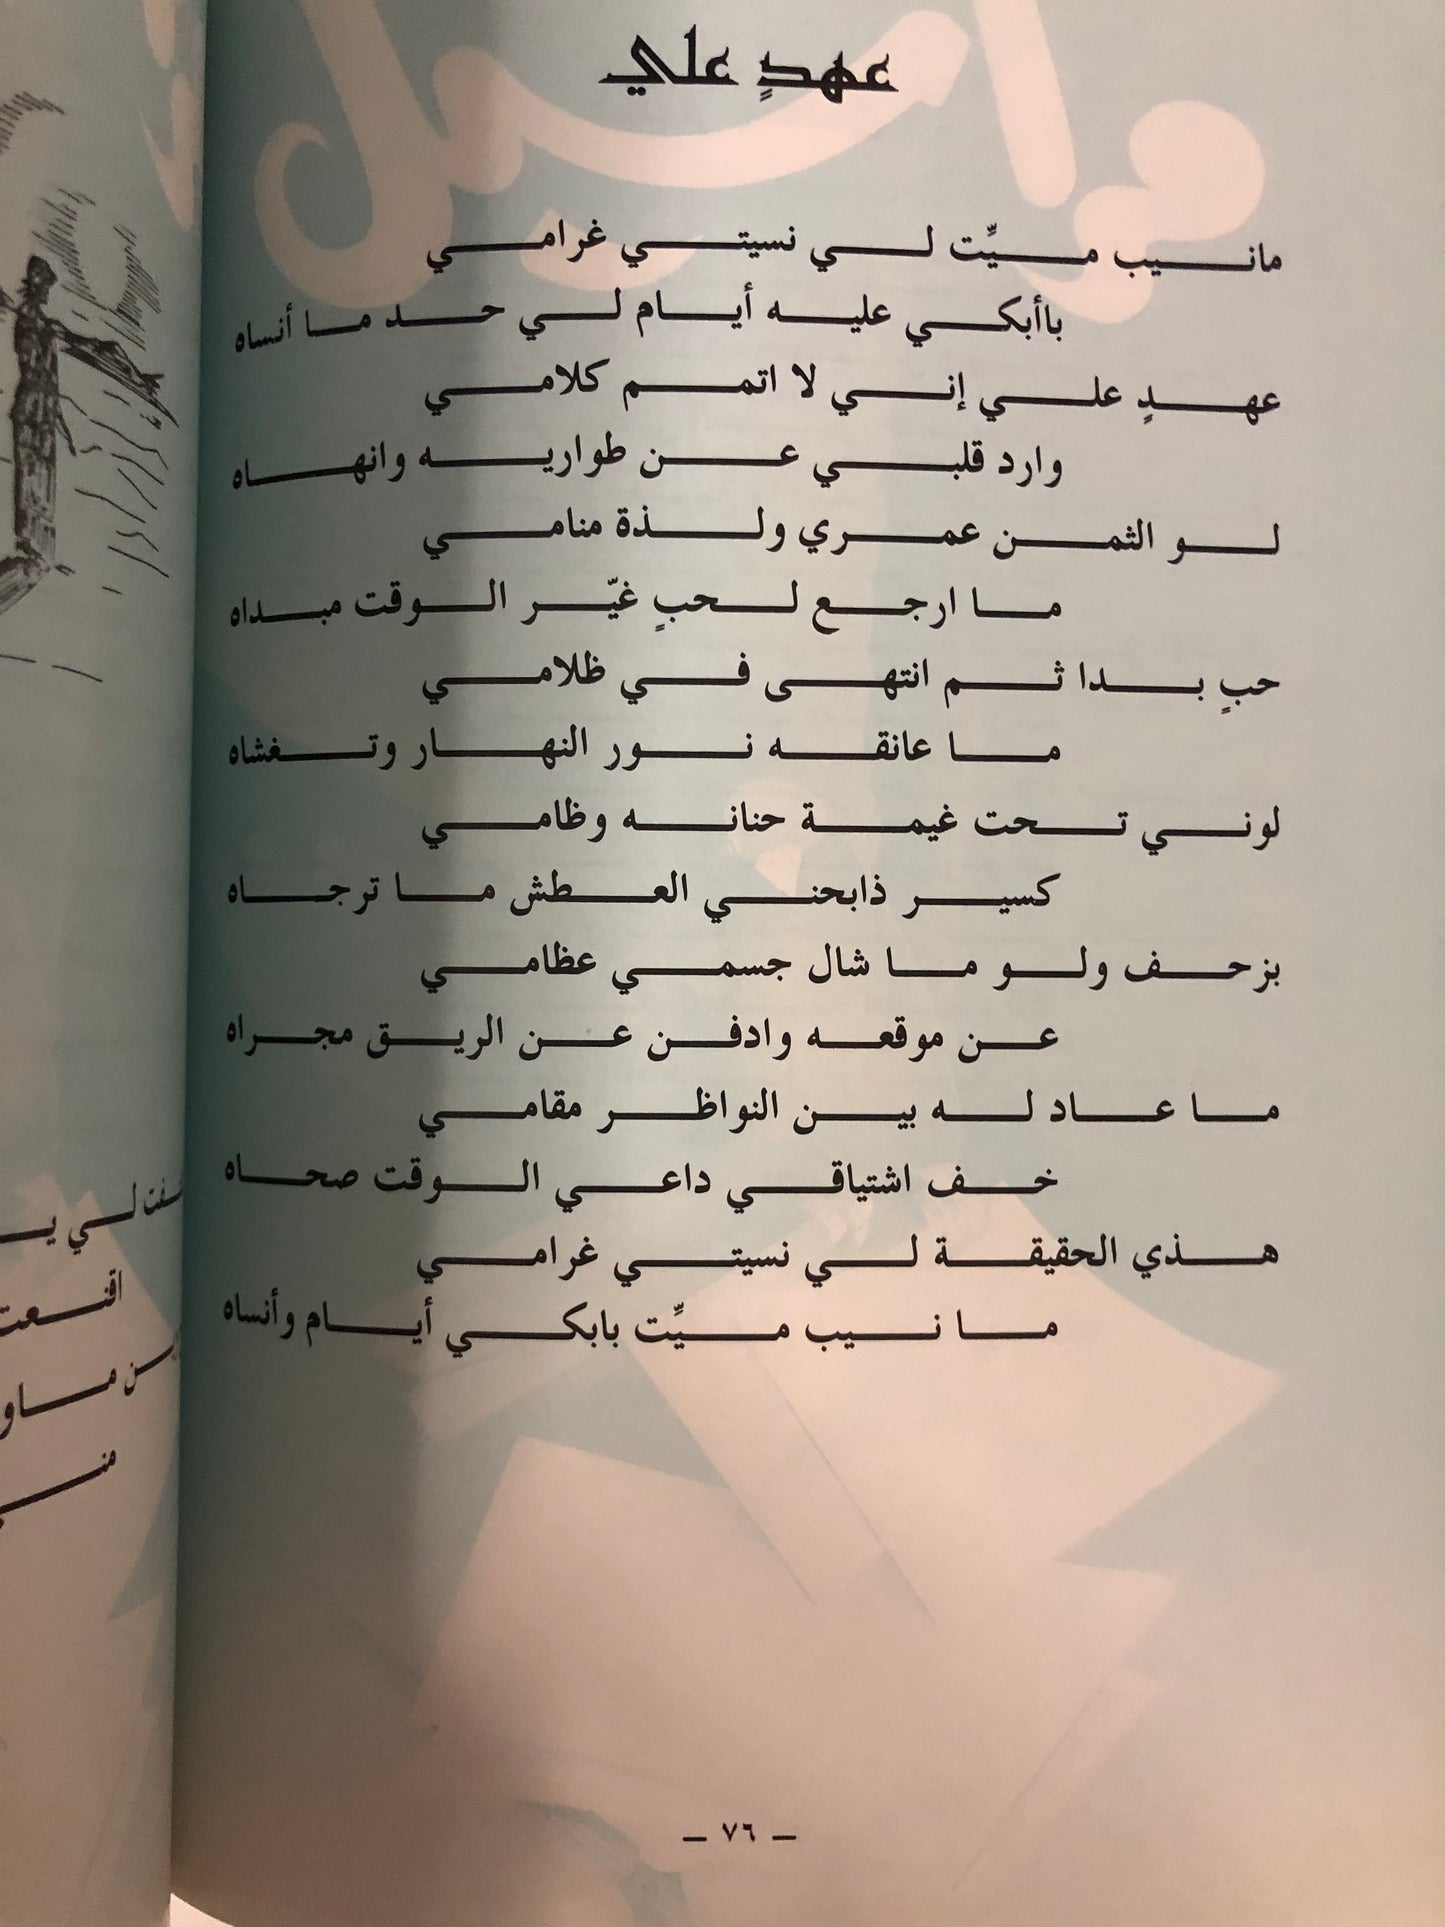 عهدٍ علي
مانيب ميِّت لي نسيتي غرامي
باأبكي عليه أيام لي حد ما أنساه
عهدٍ علي إني لا اتمم كلامي
وارد قلبي عن طواريه وانهاه
لو الثمن عمري ولذة منامي
ما ارجع لحبٍ غيّر الوقت مبداه
حبٍ بدا ثم انتهى في ظلامي
ما عانقه نور النهار وتغشاه
لوني تحت غيمة حنانه وظامي
كسير ذابحني العطش ما ترجاه
بزحف ولو ما شال جسمي عظامي
عن موقعه وادفن عن الريق مجراه
ما عاد له بين النواظر مقامي
خف اشتياقي داعي الوقت صحاه
هذي الحقيقة لي نسيتي غرامي
ما نيب ميِّت بابكي أيام وأنساه
— ٧٦ —